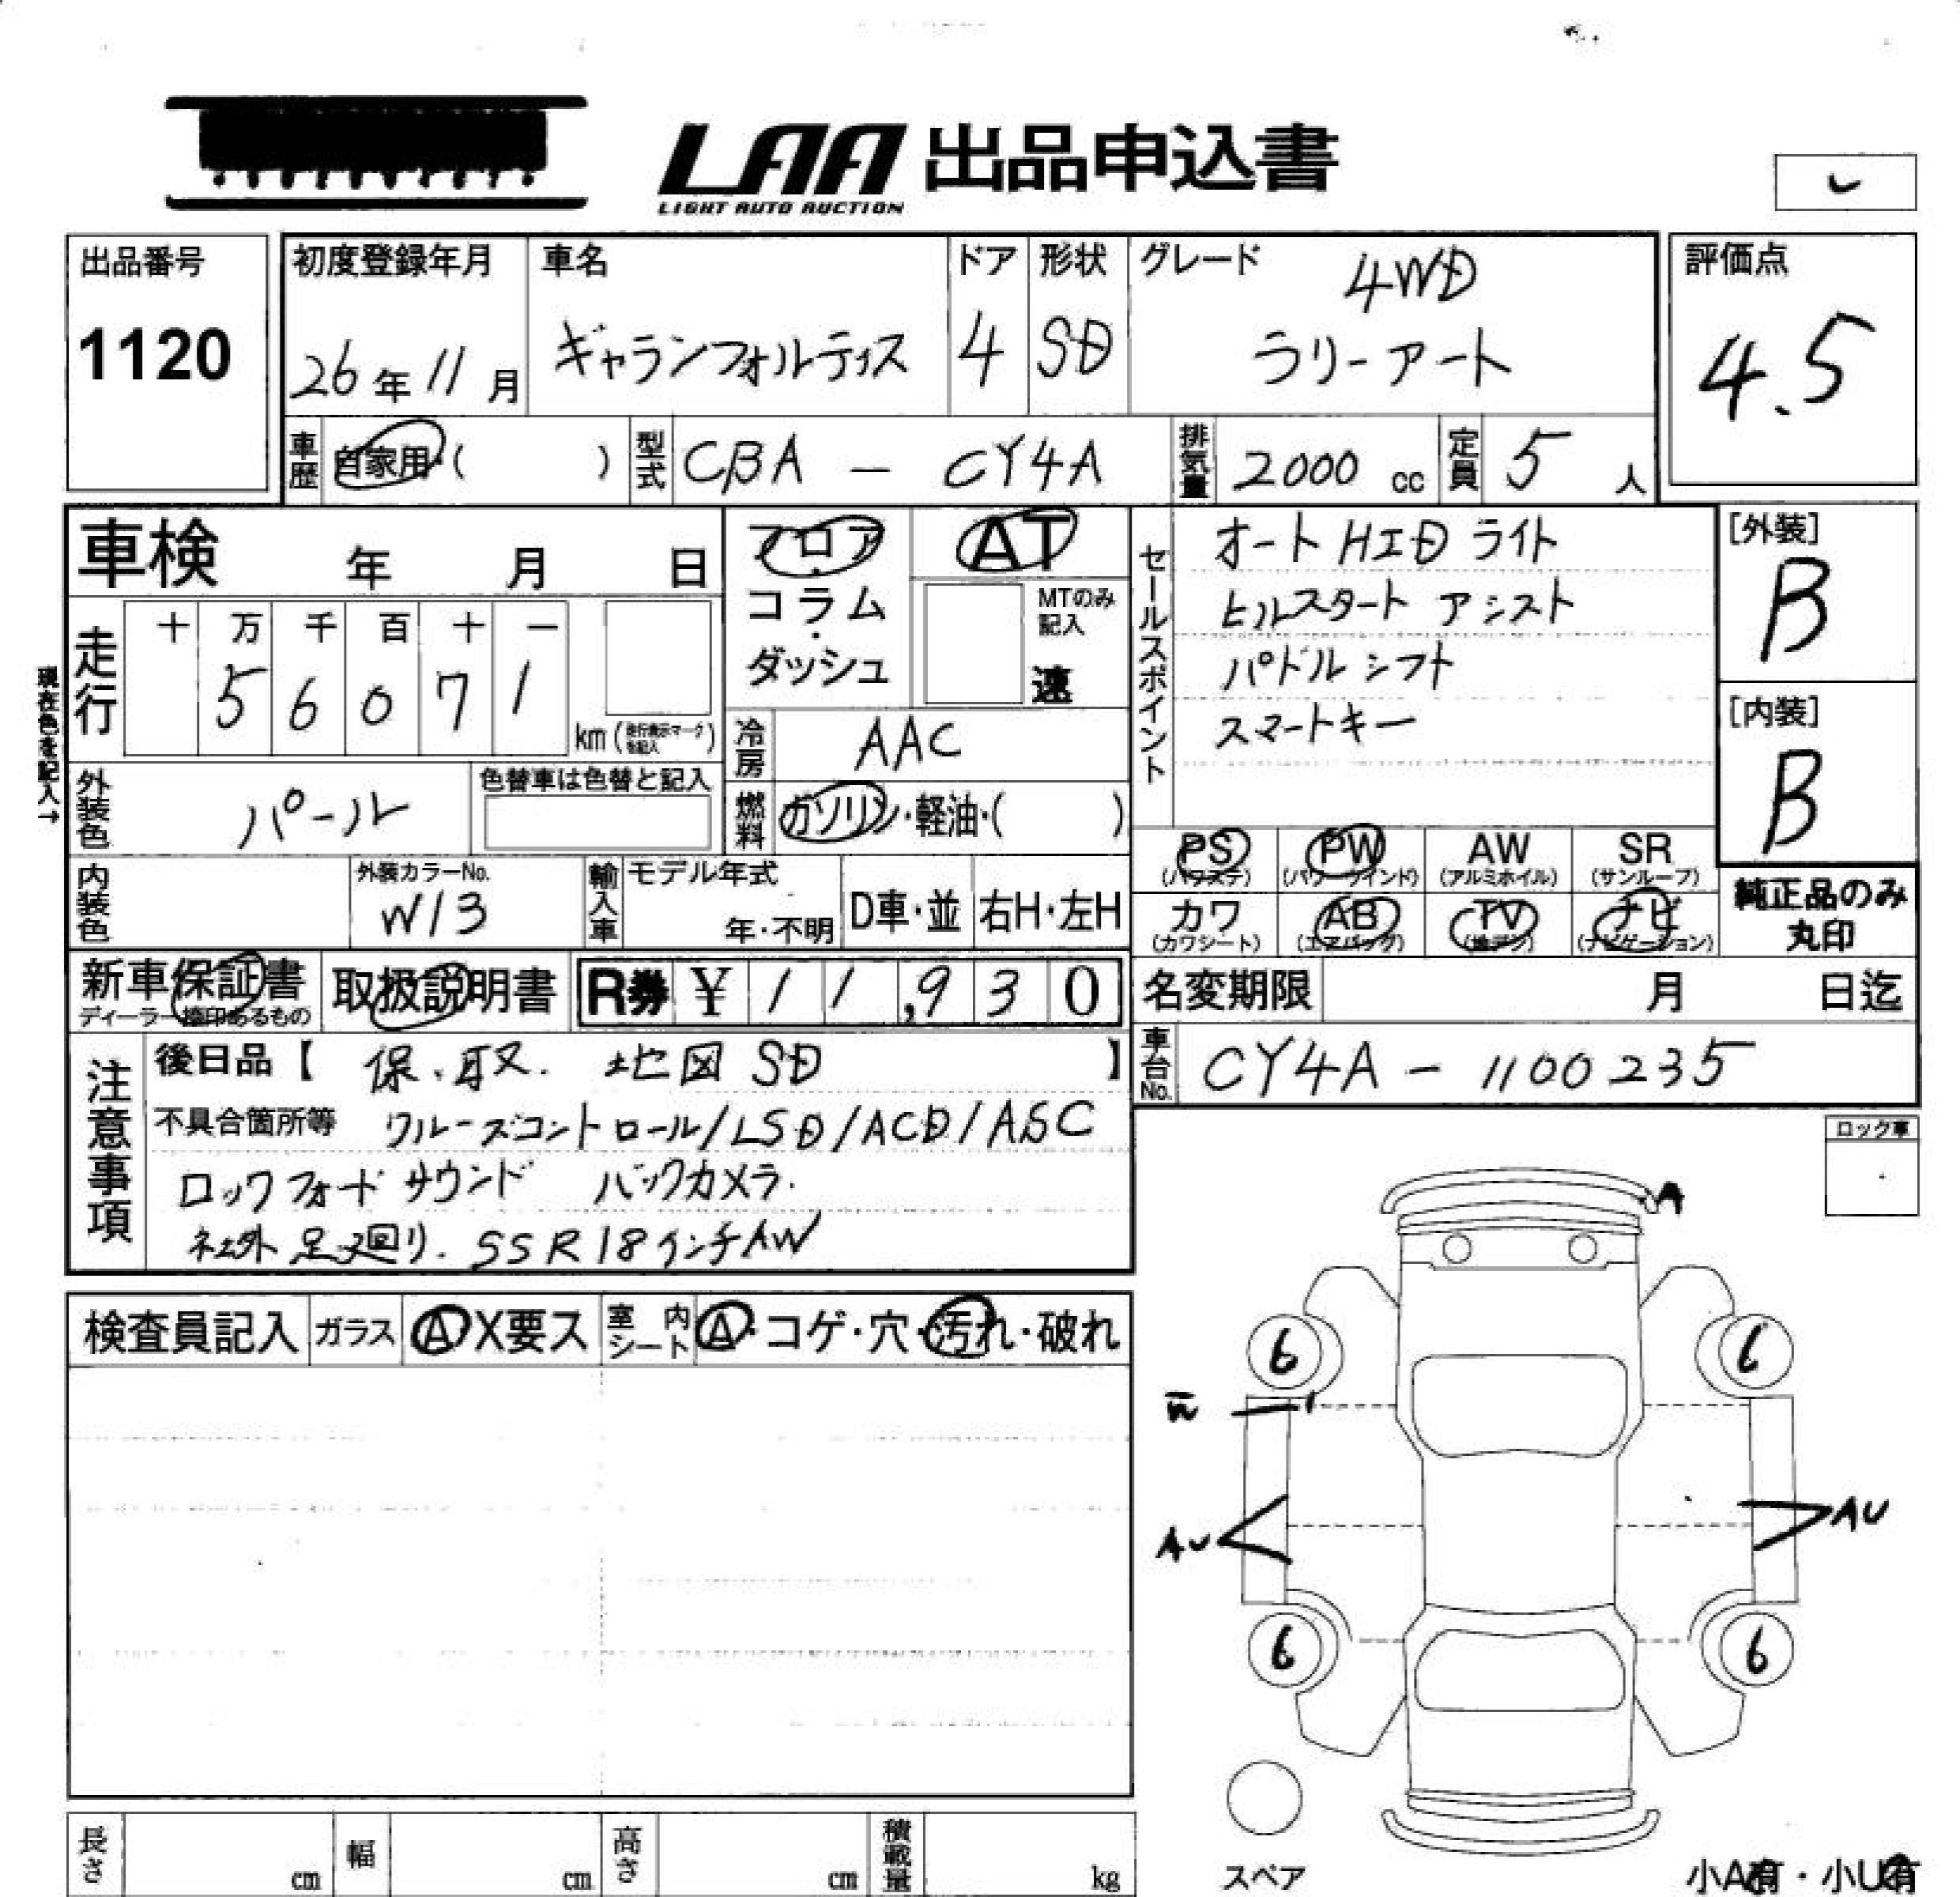 LAA 出品申込書
LIGHT AUTO AUCTION
出品番号
1120
初度登録年月
26年11月
車名
ギャランフォルティス
ドア
4
形状
SD
グレード
4WD
ラリーアート
評価点
4.5
車歴
自家用・( )
型式
CBA - CY4A
排気量
2000 cc
定員
5 人
車検 年 月 日
フロア・コラム・ダッシュ
AT
MTのみ記入
速
走行
十 万 千 百 十 一
5 6 0 7 1
km (走行表示マークを記入)
現在色を記入→
冷房
AAC
外装色
パール
色替車は色替と記入
燃料
ガソリン・軽油・( )
内装色
外装カラーNo.
W13
輸入車
モデル年式
年・不明
D車・並
右H・左H
セールスポイント
オートHIDライト
ヒルスタート アシスト
パドルシフト
スマートキー
[外装]
B
[内装]
B
PS (パワステ)
PW (パワーウインド)
AW (アルミホイル)
SR (サンルーフ)
カワ (カワシート)
AB (エアバッグ)
TV (地デジ)
ナビ (ナビゲーション)
純正品のみ丸印
新車保証書
ディーラー捺印あるもの
取扱説明書
R券 ¥ 1 1,9 3 0
名変期限 月 日迄
車台No.
CY4A - 1100235
注意事項
後日品【 保.取. 地図SD 】
不具合箇所等 クルーズコントロール/LSD/ACD/ASC
ロックフォードサウンド バックカメラ.
社外 足廻り. SSR18インチAW
ロック車
検査員記入
ガラス
A X要ス
室内シート
A・コゲ・穴・汚れ・破れ
A
6
6
AU
AU
6
6
スペア
長さ cm
幅 cm
高さ cm
積載量 kg
小A有・小U有